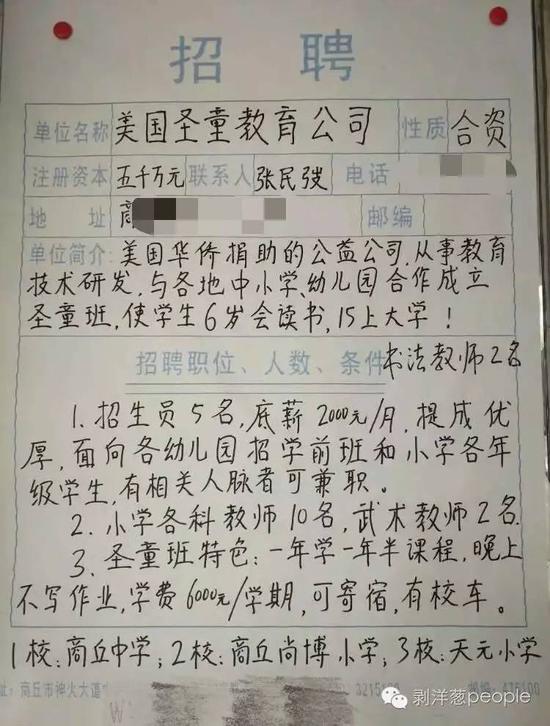 招 聘
单位名称 美国圣童教育公司 性质 合资
注册资本 五千万元 联系人 张民弢 电话
地 址 商 邮编
单位简介: 美国华侨捐助的公益公司,从事教育
技术研发,与各地中小学、幼儿园合作成立
圣童班,使学生6岁会读书,15上大学!
招聘职位、人数、条件 书法教师2名
1.招生员5名,底薪2000元/月,提成优
厚,面向各幼儿园招学前班和小学各年
级学生,有相关人脉者可兼职。
2.小学各科教师10名,武术教师2名.
3.圣童班特色:一年学一年半课程,晚上
不写作业,学费6000元/学期,可寄宿,有校车。
1校:商丘中学;2校:商丘尚博小学;3校:天元小学
址:商丘市神火大道
剥洋葱people